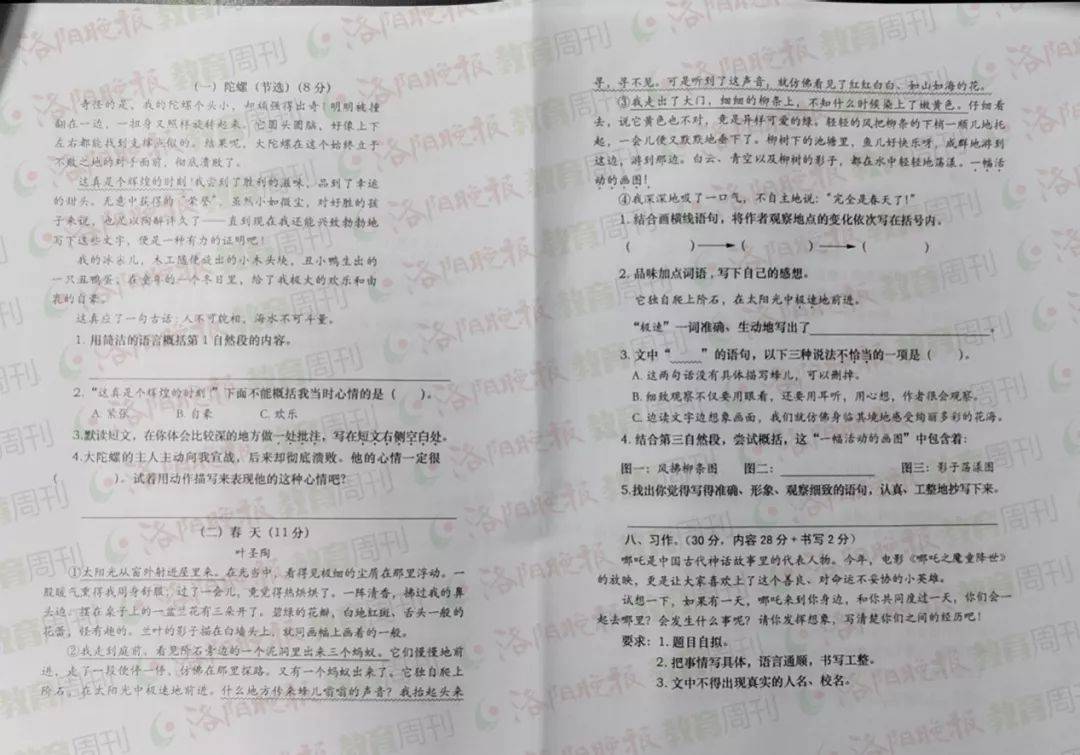 (一)陀螺(节选)(8分)
奇怪的是,我的陀螺个头小,却顽强得出奇!明明被撞
翻在一边,一扭身又照样旋转起来。它圆头圆脑,好像上下
左右都能找到支撑点似的。结果呢,大陀螺在这个始终立于
不败之地的对手面前,彻底溃败了。
这真是个辉煌的时刻!我尝到了胜利的滋味,品到了幸运
的甜头。无意中获得的“荣誉”,虽然小如微尘,对好胜的孩
子来说,也足以陶醉许久了——直到现在我还能兴致勃勃地
写下这些文字,便是一种有力的证明吧!
我的冰尜儿,木工随便旋出的小木头块,丑小鸭生出的
一只丑鸭蛋,在童年的一个冬日里,给了我极大的欢乐和由
衷的自豪。
这真应了一句古话:人不可貌相,海水不可斗量。
1.用简洁的语言概括第1自然段的内容。
2.“这真是个辉煌的时刻!”下面不能概括我当时心情的是( )。
A.紧张 B.自豪 C.欢乐
3.默读短文,在你体会比较深的地方做一处批注,写在短文右侧空白处。
4.大陀螺的主人主动向我宣战,后来却彻底溃败。他的心情一定很
( )。试着用动作描写来表现他的这种心情吧?
(二)春 天(11分)
叶圣陶
①太阳光从窗外射进屋里来。在光当中,看得见极细的尘质在那里浮动。一
股暖气熏得我周身舒服;过了一会儿,竟觉得热烘烘了。一阵清香,拂过我的鼻
头边。摆在桌子上的一盆兰花有三朵开了。碧绿的花瓣,白地红斑、舌头一般的
花蕾,怪有趣的。兰叶的影子描在白墙头上,就同画幅上画着的一般。
②我走到庭前,看见阶石旁边的一个泥洞里出来三个蚂蚁。它们慢慢地前
进,走了一段便停一停,仿佛在那里探路。又有一个蚂蚁出来了。它独自爬上
阶石,在太阳光中极速地前进。什么地方传来蜂儿嗡嗡的声音?我抬起头来
寻,寻不见。可是听到了这声音,就仿佛看见了红红白白、如山如海的花。
③我走出了大门,细细的柳条上,不知什么时候染上了嫩黄色。仔细看
去,说它黄色也不对,竟是异样可爱的绿。轻轻的风把柳条的下梢一顺儿地托
起,一会儿便又默默地垂下了。柳树下的池塘里,鱼儿好快乐呀,成群地游到
这边,游到那边。白云、青空以及柳树的影子,都在水中轻轻地荡漾。一幅活
动的画图!
④我深深地吸了一口气,不自主地说:“完全是春天了!”
1.结合画横线语句,将作者观察地点的变化依次写在括号内。
( )→( )→( )
2.品味加点词语,写下自己的感想。
它独自爬上阶石,在太阳光中极速地前进。
“极速”一词准确、生动地写出了 。
3.文中“ ”的语句,以下三种说法不恰当的一项是( )。
A.这两句话没有具体描写蜂儿,可以删掉。
B.细致观察不仅要用眼看,还要用耳听,用心想,作者很会观察。
C.边读文字边想象画面,我们就仿佛身临其境地感受绚丽多彩的花海。
4.结合第三自然段,尝试概括,这“一幅活动的画图”中包含着:
图一:风拂柳条图 图二: 图三:影子荡漾图
5.找出你觉得写得准确、形象、观察细致的语句,认真、工整地抄写下来。
八、习作。(30分,内容28分+书写2分)
哪吒是中国古代神话故事里的代表人物。今年,电影《哪吒之魔童降世》
的放映,更是让大家喜欢上了这个善良、对命运不妥协的小英雄。
试想一下,如果有一天,哪吒来到你身边,和你共同度过一天,你们会一
起去哪里?会发生什么事呢?请你发挥想象,写清楚你们之间的经历吧!
要求:1.题目自拟。
2.把事情写具体,语言通顺,书写工整。
3.文中不得出现真实的人名、校名。
洛阳晚报 教育周刊